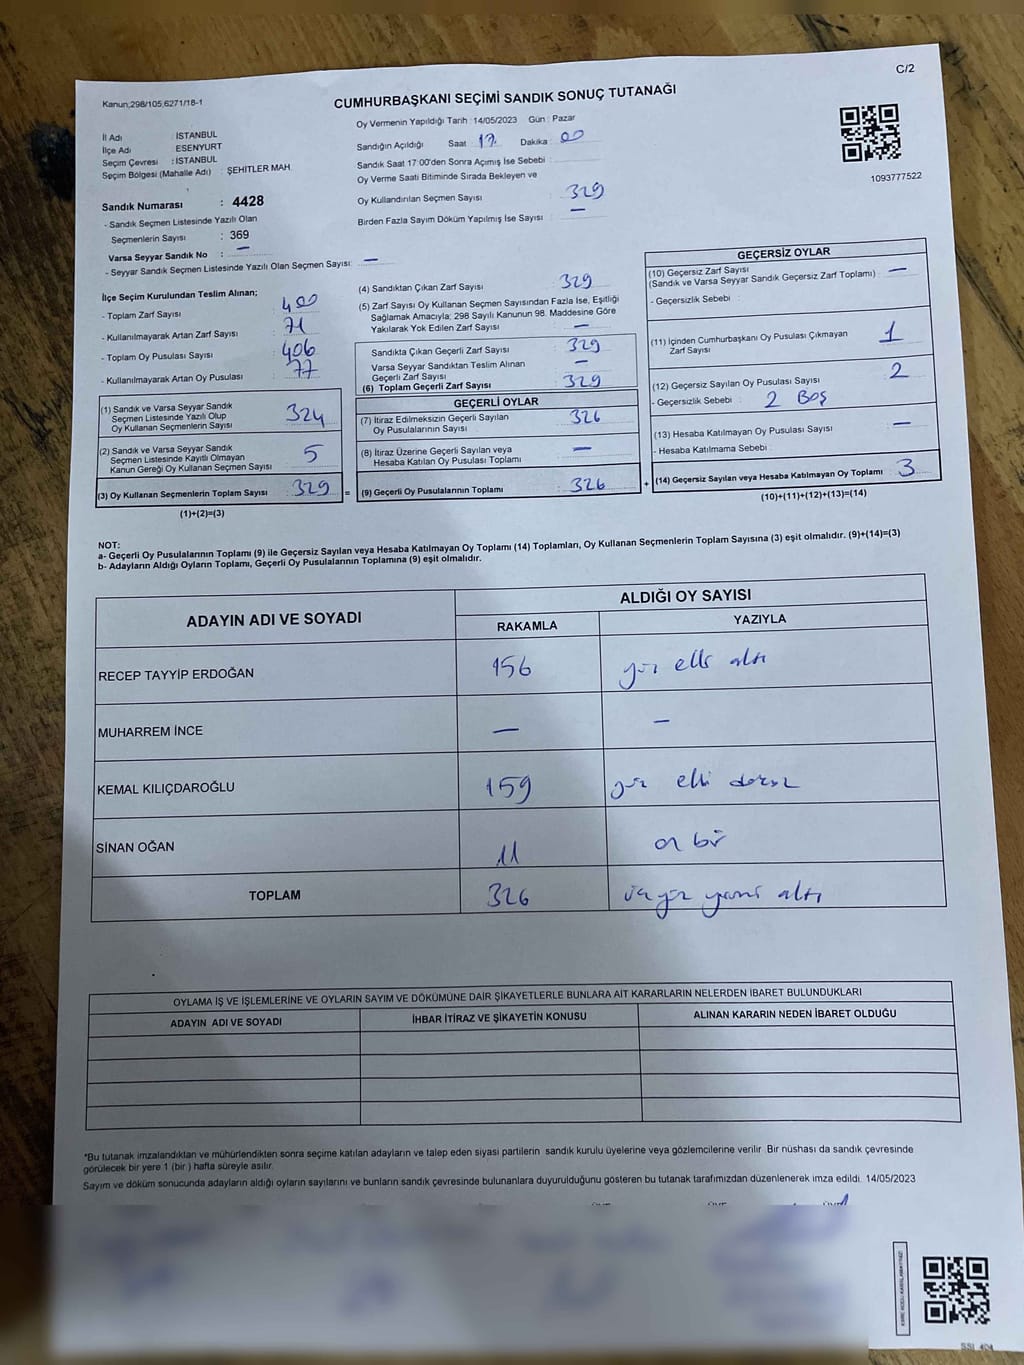 C/2
Kanun;298/105,6271/18-1
CUMHURBAŞKANI SEÇİMİ SANDIK SONUÇ TUTANAĞI
1093777522
İl Adı : İSTANBUL
İlçe Adı : ESENYURT
Seçim Çevresi : İSTANBUL
Seçim Bölgesi (Mahalle Adı) : ŞEHİTLER MAH
Sandık Numarası : 4428
- Sandık Seçmen Listesinde Yazılı Olan
Seçmenlerin Sayısı : 369
Varsa Seyyar Sandık No : —
- Seyyar Sandık Seçmen Listesinde Yazılı Olan Seçmen Sayısı: —
Oy Vermenin Yapıldığı Tarih : 14/05/2023 Gün : Pazar
Sandığın Açıldığı Saat 17 Dakika : 00
Sandık Saat 17:00'den Sonra Açımış İse Sebebi :
Oy Verme Saati Bitiminde Sırada Bekleyen ve
Oy Kullandırılan Seçmen Sayısı : 329
Birden Fazla Sayım Döküm Yapılmış İse Sayısı : —
İlçe Seçim Kurulundan Teslim Alınan;
- Toplam Zarf Sayısı : 400
- Kullanılmayarak Artan Zarf Sayısı : 71
- Toplam Oy Pusulası Sayısı : 406
- Kullanılmayarak Artan Oy Pusulası : 77
(1) Sandık ve Varsa Seyyar Sandık
Seçmen Listesinde Yazılı Olup
Oy Kullanan Seçmenlerin Sayısı : 324
(2) Sandık ve Varsa Seyyar Sandık
Seçmen Listesinde Kayıtlı Olmayan
Kanun Gereği Oy Kullanan Seçmen Sayısı : 5
(3) Oy Kullanan Seçmenlerin Toplam Sayısı : 329 =
(1)+(2)=(3)
(4) Sandıktan Çıkan Zarf Sayısı : 329
(5) Zarf Sayısı Oy Kullanan Seçmen Sayısından Fazla İse, Eşitliği
Sağlamak Amacıyla; 298 Sayılı Kanunun 98. Maddesine Göre
Yakılarak Yok Edilen Zarf Sayısı : —
Sandıkta Çıkan Geçerli Zarf Sayısı : 329
Varsa Seyyar Sandıktan Teslim Alınan
Geçerli Zarf Sayısı : —
(6) Toplam Geçerli Zarf Sayısı : 329
GEÇERLİ OYLAR
(7) İtiraz Edilmeksizin Geçerli Sayılan
Oy Pusulalarının Sayısı : 326
(8) İtiraz Üzerine Geçerli Sayılan veya
Hesaba Katılan Oy Pusulası Toplamı : —
(9) Geçerli Oy Pusulalarının Toplamı : 326 +
GEÇERSİZ OYLAR
(10) Geçersiz Zarf Sayısı
(Sandık ve Varsa Seyyar Sandık Geçersiz Zarf Toplamı) : —
- Geçersizlik Sebebi :
(11) İçinden Cumhurbaşkanı Oy Pusulası Çıkmayan
Zarf Sayısı : 1
(12) Geçersiz Sayılan Oy Pusulası Sayısı : 2
- Geçersizlik Sebebi : 2 BOŞ
(13) Hesaba Katılmayan Oy Pusulası Sayısı : —
- Hesaba Katılmama Sebebi :
(14) Geçersiz Sayılan veya Hesaba Katılmayan Oy Toplamı : 3
(10)+(11)+(12)+(13)=(14)
NOT:
a- Geçerli Oy Pusulalarının Toplamı (9) ile Geçersiz Sayılan veya Hesaba Katılmayan Oy Toplamı (14) Toplamları, Oy Kullanan Seçmenlerin Toplam Sayısına (3) eşit olmalıdır. (9)+(14)=(3)
b- Adayların Aldığı Oyların Toplamı, Geçerli Oy Pusulalarının Toplamına (9) eşit olmalıdır.
ADAYIN ADI VE SOYADI
ALDIĞI OY SAYISI
RAKAMLA YAZIYLA
RECEP TAYYİP ERDOĞAN 156 yüz elli altı
MUHARREM İNCE — —
KEMAL KILIÇDAROĞLU 159 yüz elli dokuz
SİNAN OĞAN 11 on bir
TOPLAM 326 üçyüz yirmi altı
OYLAMA İŞ VE İŞLEMLERİNE VE OYLARIN SAYIM VE DÖKÜMÜNE DAİR ŞİKAYETLERLE BUNLARA AİT KARARLARIN NELERDEN İBARET BULUNDUKLARI
ADAYIN ADI VE SOYADI İHBAR İTİRAZ VE ŞİKAYETİN KONUSU ALINAN KARARIN NEDEN İBARET OLDUĞU
*Bu tutanak imzalandıktan ve mühürlendikten sonra seçime katılan adayların ve talep eden siyasi partilerin sandık kurulu üyelerine veya gözlemcilerine verilir. Bir nüshası da sandık çevresinde
görülecek bir yere 1 (bir ) hafta süreyle asılır.
Sayım ve döküm sonucunda adayların aldığı oyların sayılarını ve bunların sandık çevresinde bulunanlara duyurulduğunu gösteren bu tutanak tarafımızdan düzenlenerek imza edildi. 14/05/2023